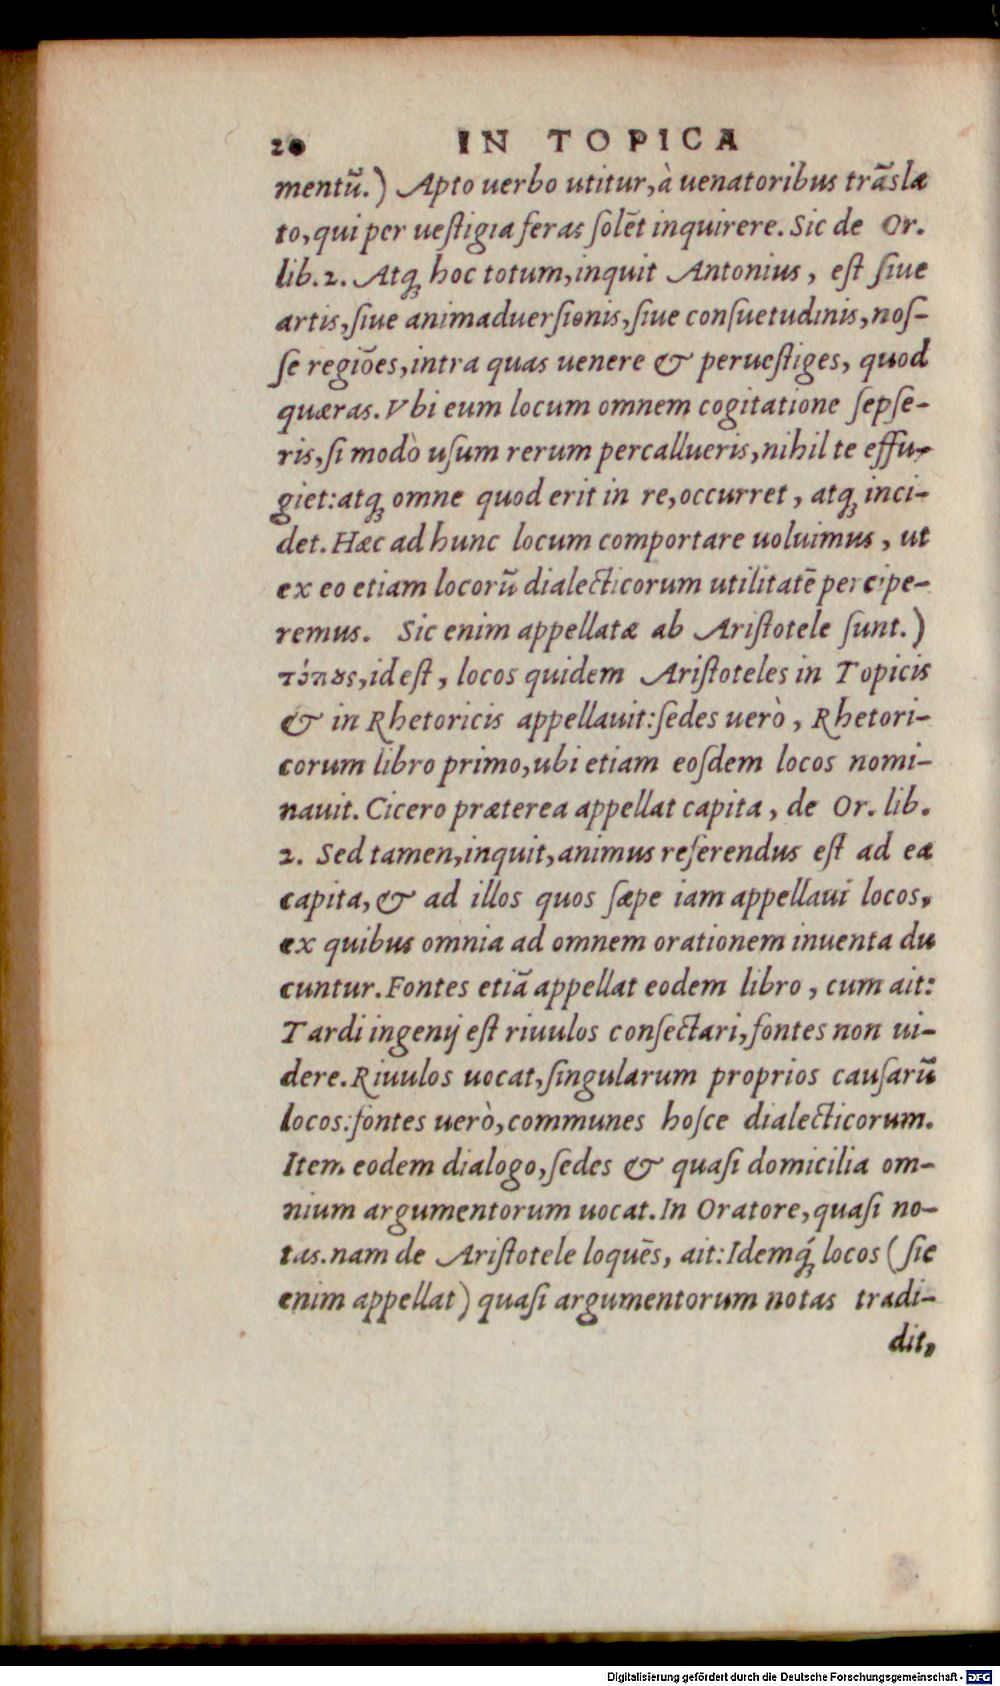 20 IN TOPICA
mentũ.) Apto uerbo utitur, à uenatoribus trãsla
to, qui per ueſtigia feras ſolẽt inquirere. Sic de Or.
lib. 2. Atq; hoc totum, inquit Antonius, eſt ſiue
artis, ſiue animaduerſionis, ſiue conſuetudinis, noſ-
ſe regiões, intra quas uenere & perueſtiges, quod
quæras. Vbi eum locum omnem cogitatione ſepſe-
ris, ſi modò uſum rerum percallueris, nihil te effu-
giet: atq; omne quod erit in re, occurret, atq; inci-
det. Hæc ad hunc locum comportare uoluimus, ut
ex eo etiam locorũ dialecticorum utilitatẽ percipe-
remus. Sic enim appellatæ ab Ariſtotele ſunt.)
τόπȣς, id eſt, locos quidem Ariſtoteles in Topicis
& in Rhetoricis appellauit: ſedes uerò, Rhetori-
corum libro primo, ubi etiam eoſdem locos nomi-
nauit. Cicero præterea appellat capita, de Or. lib.
2. Sed tamen, inquit, animus referendus eſt ad ea
capita, & ad illos quos ſæpe iam appellaui locos,
ex quibus omnia ad omnem orationem inuenta du
cuntur. Fontes etiã appellat eodem libro, cum ait:
Tardi ingenij eſt riuulos conſectari, fontes non ui-
dere. Riuulos uocat, ſingularum proprios cauſarũ
locos: fontes uerò, communes hoſce dialecticorum.
Item eodem dialogo, ſedes & quaſi domicilia om-
nium argumentorum uocat. In Oratore, quaſi no-
tas. nam de Ariſtotele loquẽs, ait: Idemq́; locos (ſic
enim appellat) quaſi argumentorum notas tradi-
dit,
Digitalisierung gefördert durch die Deutsche Forschungsgemeinschaft - DFG